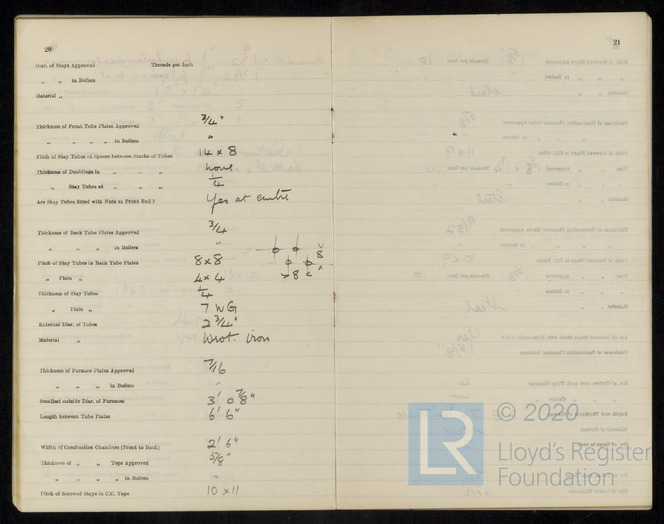 20
Diar. of Stays Approved Threads per Inch
„ „ in Boilers
Material „
Thickness of Front Tube Plates Approved 3/4"
„ „ „ „ in Boilers "
Pitch of Stay Tubes at Spaces between Stacks of Tubes 14 x 8
Thickness of Doublings in „ „ „ none
„ Stay Tubes at „ „ „ 1/4
Are Stay Tubes fitted with Nuts at Front End? Yes at centre
Thickness of Back Tube Plates Approved 3/4
„ „ „ „ in Boilers "
Pitch of Stay Tubes in Back Tube Plates 8 x 8
8
„ Plain „ 4 x 4 > 8 <
Thickness of Stay Tubes 1/4
„ Plain „ 7 WG
External Diar. of Tubes 2 3/4"
Material „ Wrot. iron
Thickness of Furnace Plates Approved 7/16
„ „ „ in Boilers "
Smallest outside Diar. of Furnaces 3' 0 7/8"
Length between Tube Plates 6' 6"
Width of Combustion Chambers (Front to Back) 2' 6"
Thickness of „ „ Tops Approved 5/8"
„ „ „ „ in Boilers "
Pitch of Screwed Stays in C.C. Tops 10 x 11
21
"
LR
© 2020
Lloyd's Register
Foundation